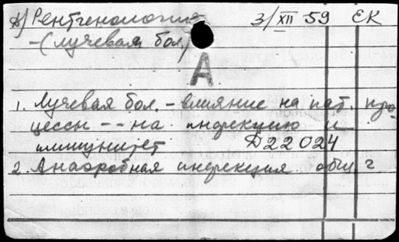 А) Рентгенология 3/XII 59 ЕК
- (лучевая бол.)
А
1. Лучевая бол. - влияние на пат. про-
цессы - - на инфекцию и
иммунитет Д22024
2. Анаэробная инфекция общ